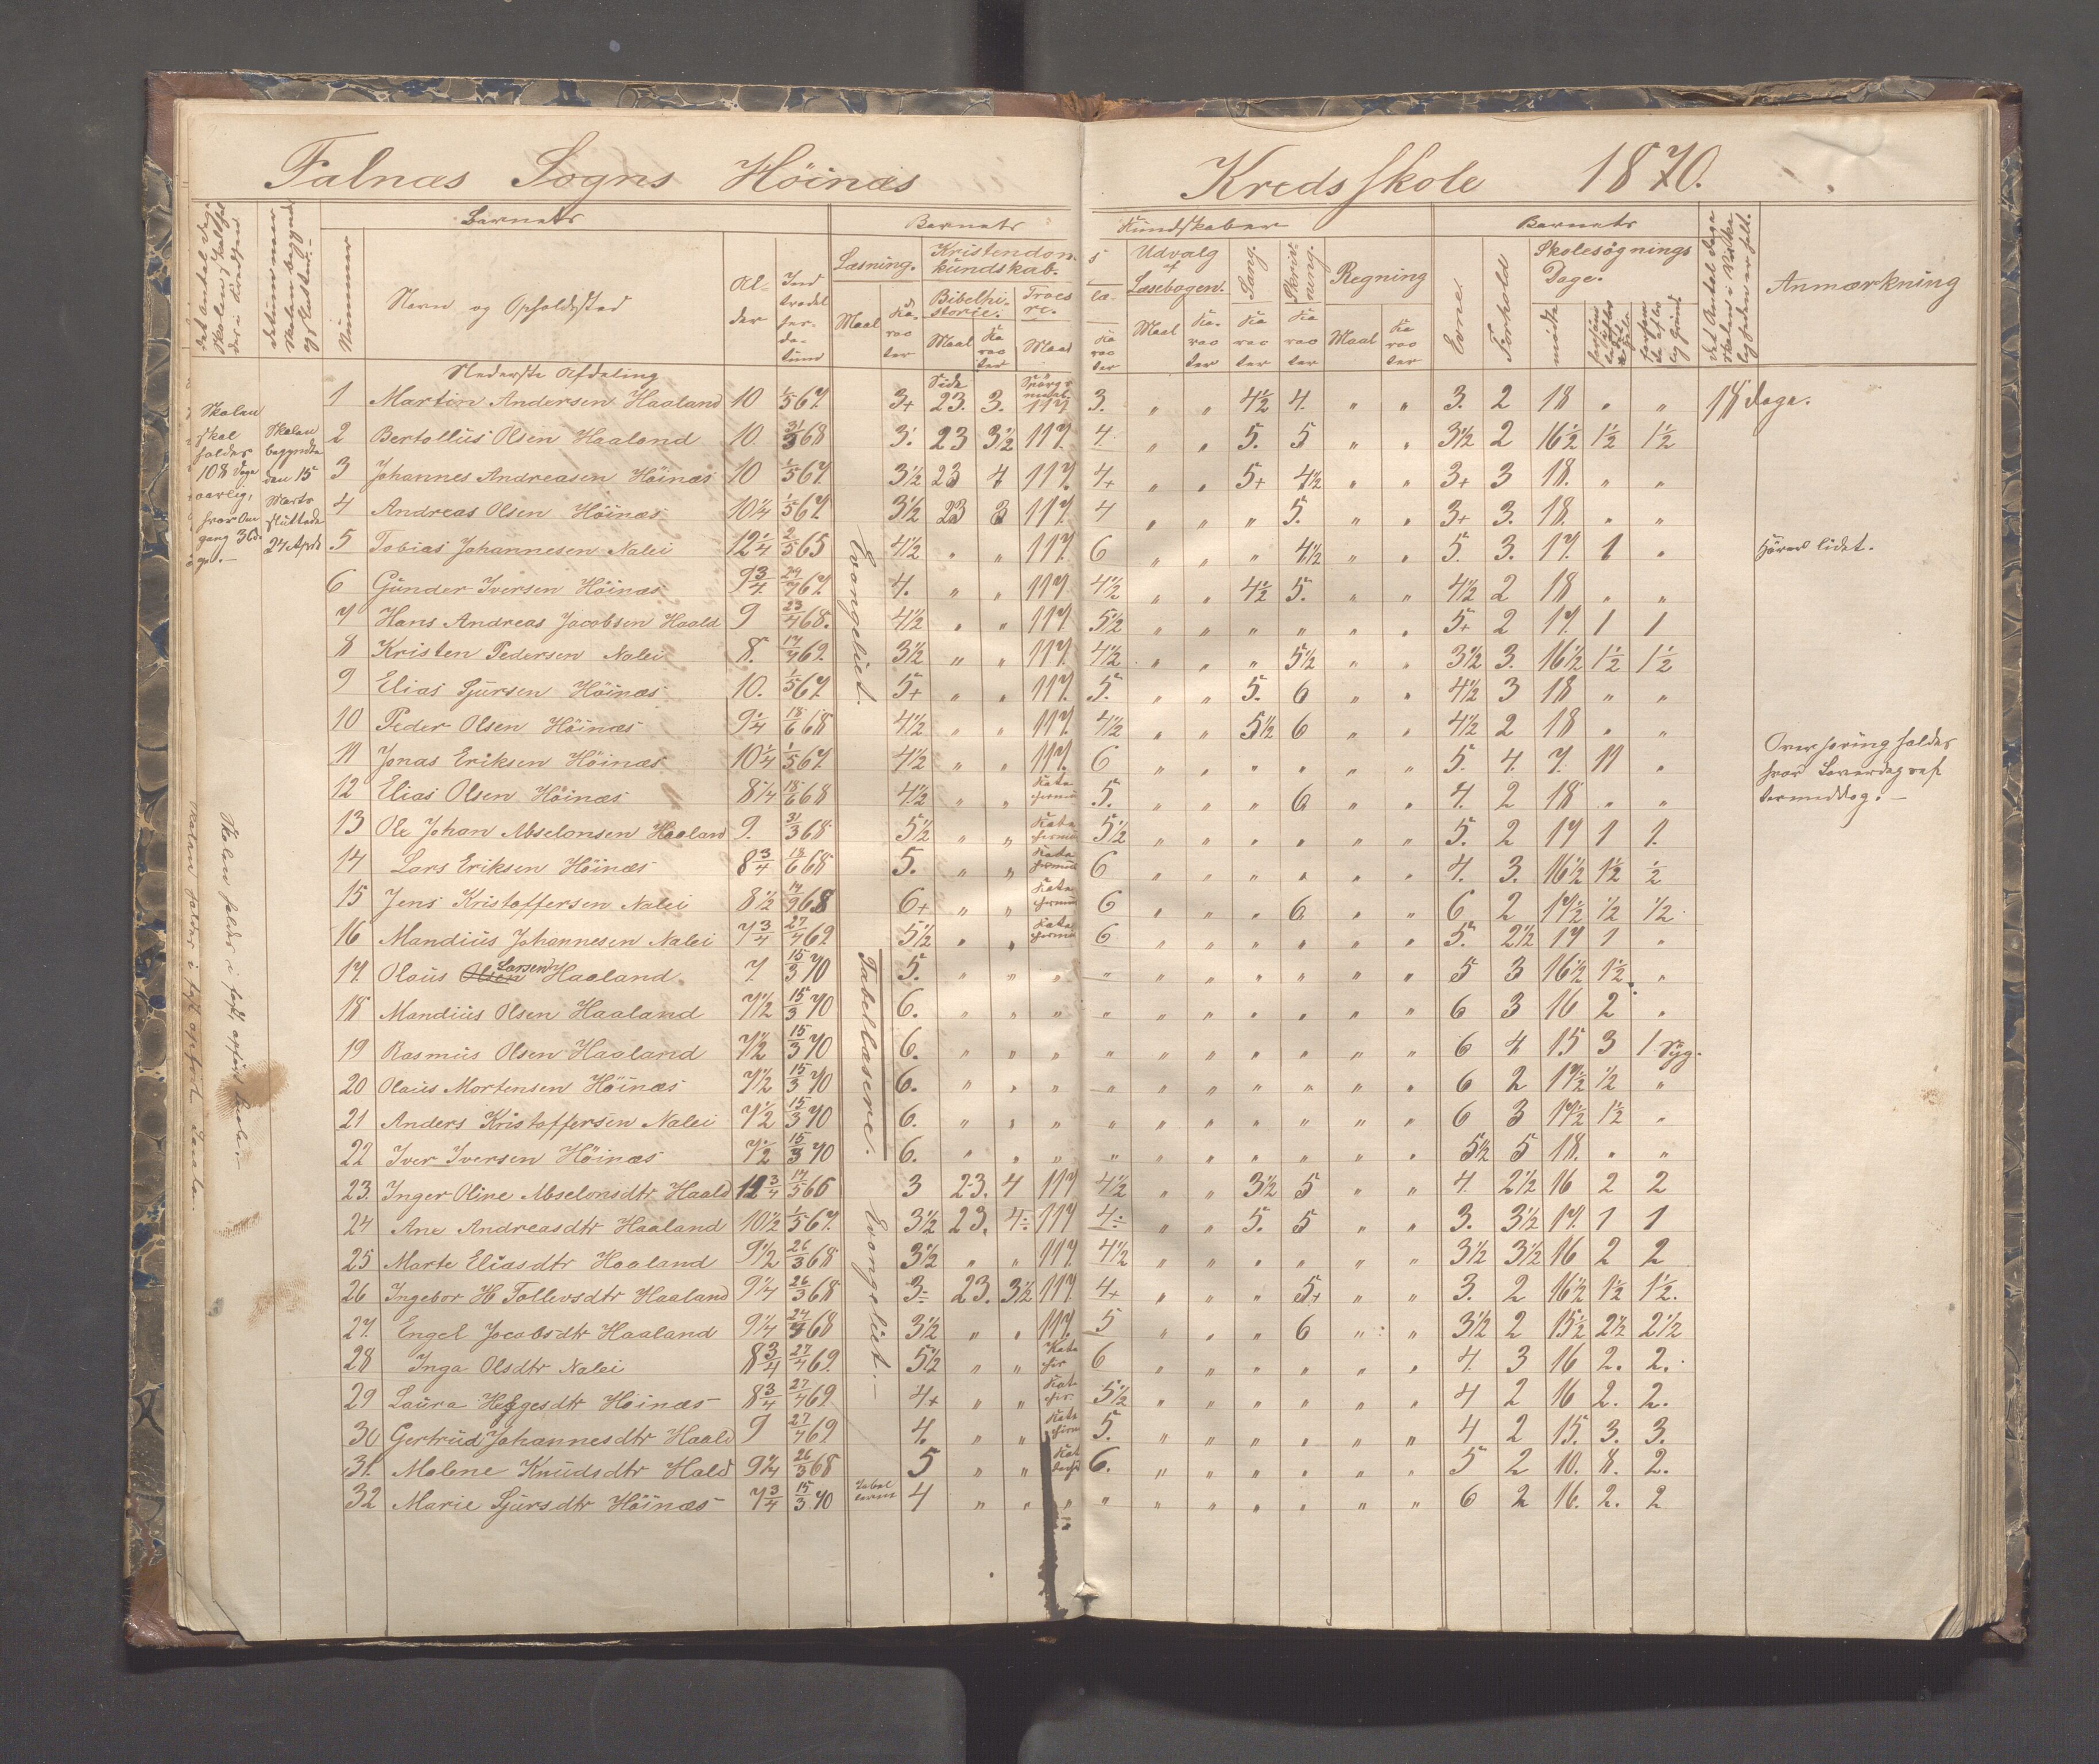 Falnæs Sogns Höinæs Kredsskole 1870.
Barnets Barnets Kundskaber Barnets
Nummer Navn og Opholdssted Alder Indtrædelsesdatum Læsning. Kristendomskundskab. Udvalg af Læsebogen. Sang. Skrivning. Regning Evne Forhold Skolesøgnings Dage. Anmærkning
Maal Karacter Bibelhistorie. Troeslære. Maal Karacter Maal Karacter Maal Karacter Karacter Karacter Maal Karacter mødte
Nederste Afdeling
Side Spörgsmaal
1 Martin Andersen Haaland 10 1/5 67. 3+ 23. 3. 117 3. „ „ 4½ 4. „ „ 3. 2 18 „ „ 18 dage.
2 Bertollius Olsen Haaland 10 31/3 68 3. 23 3½ 117. 4 „ „ 5. 5 „ „ 3½ 2 16½ 1½ 1½
3 Johannes Andreasen Höinæs 10 1/5 67. 3½ 23 4 117. 4+ „ „ 5+ 4½ „ „ 3+ 3 18. „ „
4 Andreas Olsen Höinæs 10¼ 1/5 67. 3½ 23 3 117. 4 „ „ „ 5. „ „ 3+ 3. 18. „ „
5 Tobias Johannesen Nalei 12¼ 2/5 65 4½ „ „ 117. 6 „ „ „ 4½ „ „ 5. 3. 17. 1 „ Hører lidet.
6 Gunder Iversen Höinæs 9¾ 29/4 67. 4. „ „ 117 4½ „ „ 4½ 5. „ „ 4½ 2 18 „ „
7 Hans Andreas Jacobsen Haald 9 23/4 68. 4½ „ „ 117 5½ „ „ „ „ „ „ 5+ 2 17. 1 1
8 Kristen Pedersen Nalei 8. 17/4 69. 3½ „ „ 117. 4½ „ „ „ 5½ „ „ 3½ 3. 16½ 1½ 1½
9 Elias Sjursen Höinæs 10. 1/5 67. 5+ „ „ 117. 5. „ „ 5. 6 „ „ 4½ 3 18 „ „
10 Peder Olsen Höinæs 9¼ 18/6 68 4½ „ „ 117. 4½ „ „ 5½ 6 „ „ 4½ 2 18 „ „
11 Jonas Eriksen Höinæs 10¼ 1/5 67. 4½ „ „ 117. 6 „ „ „ „ „ „ 5. 4. 7. 11 „
12 Elias Olsen Höinæs 8¼ 18/6 68 4½ „ „ 5. „ „ „ 6 „ „ 4. 2 18 „ „
13 Ole Johan Abselonsen Haaland 9. 31/3 68 5½ „ „ 5½ „ „ „ „ „ „ 5. 2 17 1 1.
14 Lars Eriksen Höinæs 8¾ 18/6 68 5. „ „ 6 „ „ „ „ „ „ 4. 3. 16½ 1½ ½
15 Jens Kristoffersen Nalei 8½ 14/9 68 6+ „ „ 6 „ „ „ 6 „ „ 6 2 17½ ½ ½
16 Mandius Johannesen Nalei 7¾ 27/4 69 5½ „ „ 6 „ „ „ „ „ „ 5. 2½ 17 1 „
17. Olaus Olsen Larsen Haaland. 7. 15/3 70 5. „ „ „ „ „ „ „ „ „ „ 5 3 16½ 1½ „
18 Mandius Olsen Haaland 7½ 15/3 70 6. „ „ „ „ „ „ „ „ „ „ 6 3 16 2 „
19 Rasmus Olsen Haaland 7½ 15/3 70 6. „ „ „ „ „ „ „ „ „ „ 6 4 15 3 1 Syg.
20 Olaus Mortensen Höinæs 7½ 15/3 70 6. „ „ „ „ „ „ „ „ „ „ 6 2 17½ ½ „
21 Anders Kristoffersen Nalei 7½ 15/3 70 6. „ „ „ „ „ „ „ „ „ „ 6 3 17½ 1½ „
22 Iver Iversen Höinæs 7½ 15/3 70 6. „ „ „ „ „ „ „ „ „ „ 5½ 5 18. „ „
23. Inger Oline Abselonsdtr Haald 12¾ 14/5 65 3 23. 4 117 4½ „ „ 3½ 5 „ „ 4. 2½ 16 2 2
24 Ane Andreasdtr Haaland 10½ 1/5 67. 3½ 23. 4÷ 117 4÷ „ „ 5. 5 „ „ 3. 3½ 17. 1 1
25 Marte Eliasdtr Haaland 9½ 26/3 68 3½ „ „ 117. 4½ „ „ „ „ „ „ 3½ 3½ 16 2 2
26 Ingebor H Tollevsdtr Haaland 9¼ 26/3 68 3÷ 23. 3½ 117. 4+ „ „ „ 5+ „ „ 3. 2 16½ 1½ 1½.
27. Engel Jacobsdtr Haaland 9¼ 24/3 68 3½ „ „ 117. 5 „ „ „ 6 „ „ 3½ 2 15½ 2½ 2½
28 Inga Olsdtr Nalei 8¾ 27/4 69. 5½ „ „ 6 „ „ „ „ „ „ 4. 3 16 2. 2.
29 Laura Helgesdtr Höinæs 8¾ 27/4 69 4+ „ „ 5½ „ „ „ „ „ „ 4 2 16 2. 2.
30 Gertrud Johannesdtr Haald 9 27/4 69. 4. „ „ 5. „ „ „ „ „ „ 4 2 15. 3. 3.
31. Malene Knudsdtr Hald 9¼ 26/3 68 5 „ „ 6. „ „ „ „ „ „ 5 2 10. 8. 2.
32 Marie Sjursdtr Höinæs 7¾ 15/3 70 4 „ „ „ „ „ „ „ „ „ „ 6 2 16. 2. 2
Evangeliet.
Tabellæsere.
Evangeliet.
Skolen
skal
holdes
108 Dage
aarlig,
hver Om
gang 36 da
ge.
Skolen
begyndte
den 15
Marts
sluttede
24 April
Overhøring holdes
hver Løverdag ef
termiddag.